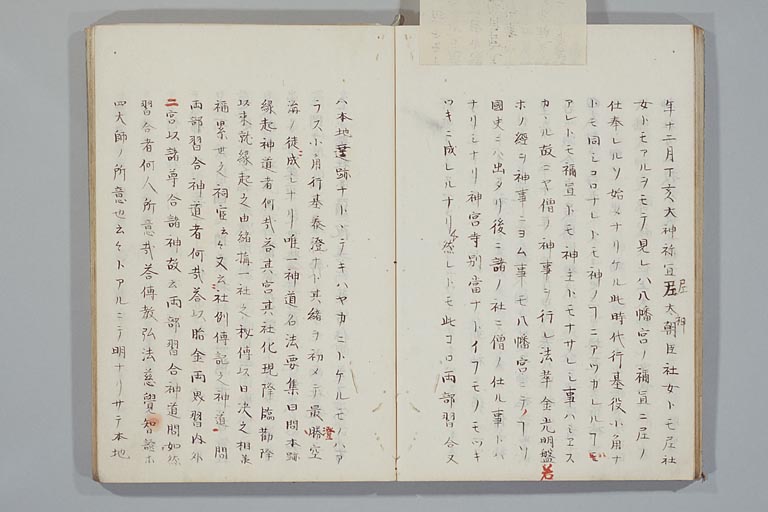 年十二月丁亥大神祢宜尼大神朝臣社女トモ尼社
女トモアルヲモテ見レハ八幡宮ノ禰宜ニ尼ノ
仕奉レルソ始メナリケル此時代行基役小角ナ
トモ同シコロナレトモ神ノフニアツカレルフモ
アレトモ禰宜トモ神主トモナサレシ事ハミエス
カヽル故ニヤ僧ノ神事ヲ行レ法華金光明盤若
ホノ經ヲ神事ニヨム事モ八幡宮ニテノフソ
國史ニハ出タリ後ニ諸ノ社ニ僧ノ仕ル事トハ
ナリシナリ神宮寺別當ナトイフモノモツキ
ツキニ成レルナリ然レトモ此コロ両部習合又
ハ本地垂跡ナトヽテキハヤカニトケルモノハア
ラス小角行基泰澄ナト其緒ヲ初メテ最澄空
海ノ徒成シナリ唯一神道名法要集曰問本跡
緣起神道者何哉荅某宮某社化現降臨勸請
以来就緣起之由緒搆一社之秘傳以口决之相承
稱累世之祠官云々又云社例傳記之神道 問
両部習合神道者何哉荅以胎金両界習内外
二宮以諸尊合諸神故云両部習合神道問如然
習合者何人所意哉荅傳教弘法慈覺智證ホ
四大師ノ所意也云々トアルニテ明ナリサテ本地